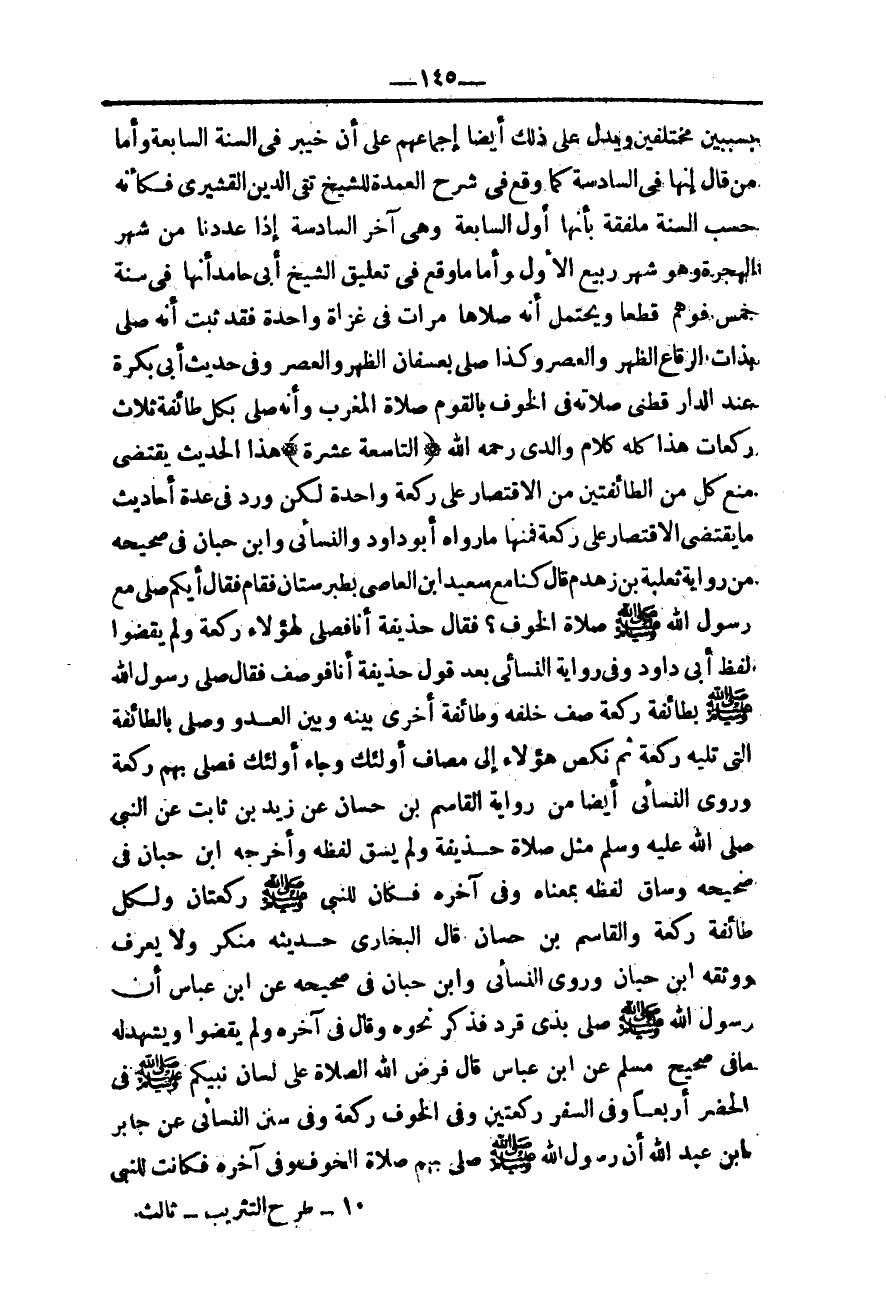 — ١٤٥ —
بسببين مختلفين ويدل على ذلك أيضا إجماعهم على أن خيبر فى السنة السابعة وأما
من قال إنها فى السادسة كما وقع فى شرح العمدة للشيخ تقى الدين القشيرى فكأنه
حسب السنة ملفقة بأنها أول السابعة وهى آخر السادسة إذا عددنا من شهر
الهجرة وهو شهر ربيع الأول وأما ما وقع فى تعليق الشيخ أبى حامد أنها فى سنة
خمس فوهم قطعا ويحتمل أنه صلاها مرات فى غزاة واحدة فقد ثبت أنه صلى
بذات الرقاع الظهر والعصر وكذا صلى بعسفان الظهر والعصر وفى حديث أبى بكرة
عند الدار قطنى صلاته فى الخوف بالقوم صلاة المغرب وأنه صلى بكل طائفة ثلاث
ركعات هذا كله كلام والدى رحمه الله ﴿ التاسعة عشرة ﴾ هذا الحديث يقتضى
منع كل من الطائفتين من الاقتصار على ركعة واحدة لكن ورد فى عدة أحاديث
ما يقتضى الاقتصار على ركعة فمنها ما رواه أبو داود والنسائى وابن حبان فى صحيحه
من رواية ثعلبة بن زهدم قال كنا مع سعيد ابن العاصى بطبرستان فقام فقال أيكم صلى مع
رسول الله ﷺ صلاة الخوف؟ فقال حذيفة أنا فصلى لهؤلاء ركعة ولم يقضوا
لفظ أبى داود وفى رواية النسائى بعد قول حذيفة أنا فوصف فقال صلى رسول الله
ﷺ بطائفة ركعة صف خلفه وطائفة أخرى بينه وبين العدو وصلى بالطائفة
التى تليه ركعة ثم نكص هؤلاء إلى مصاف أولئك وجاء أولئك فصلى بهم ركعة
وروى النسائى أيضا من رواية القاسم بن حسان عن زيد بن ثابت عن النبى
صلى الله عليه وسلم مثل صلاة حذيفة ولم يسق لفظه وأخرجه ابن حبان فى
صحيحه وساق لفظه بمعناه وفى آخره فكان للنبى ﷺ ركعتان ولكل
طائفة ركعة والقاسم بن حسان قال البخارى حديثه منكر ولا يعرف
ووثقه ابن حبان وروى النسائى وابن حبان فى صحيحه عن ابن عباس أن
رسول الله ﷺ صلى بذى قرد فذكر نحوه وقال فى آخره ولم يقضوا ويشهد له
ما فى صحيح مسلم عن ابن عباس قال فرض الله الصلاة على لسان نبيكم ﷺ فى
الحضر أربعا وفى السفر ركعتين وفى الخوف ركعة وفى سنن النسائى عن جابر
ابن عبد الله أن رسول الله ﷺ صلى بهم صلاة الخوف وفى آخره فكانت للنبى
١٠ – طرح التثريب – ثالث.